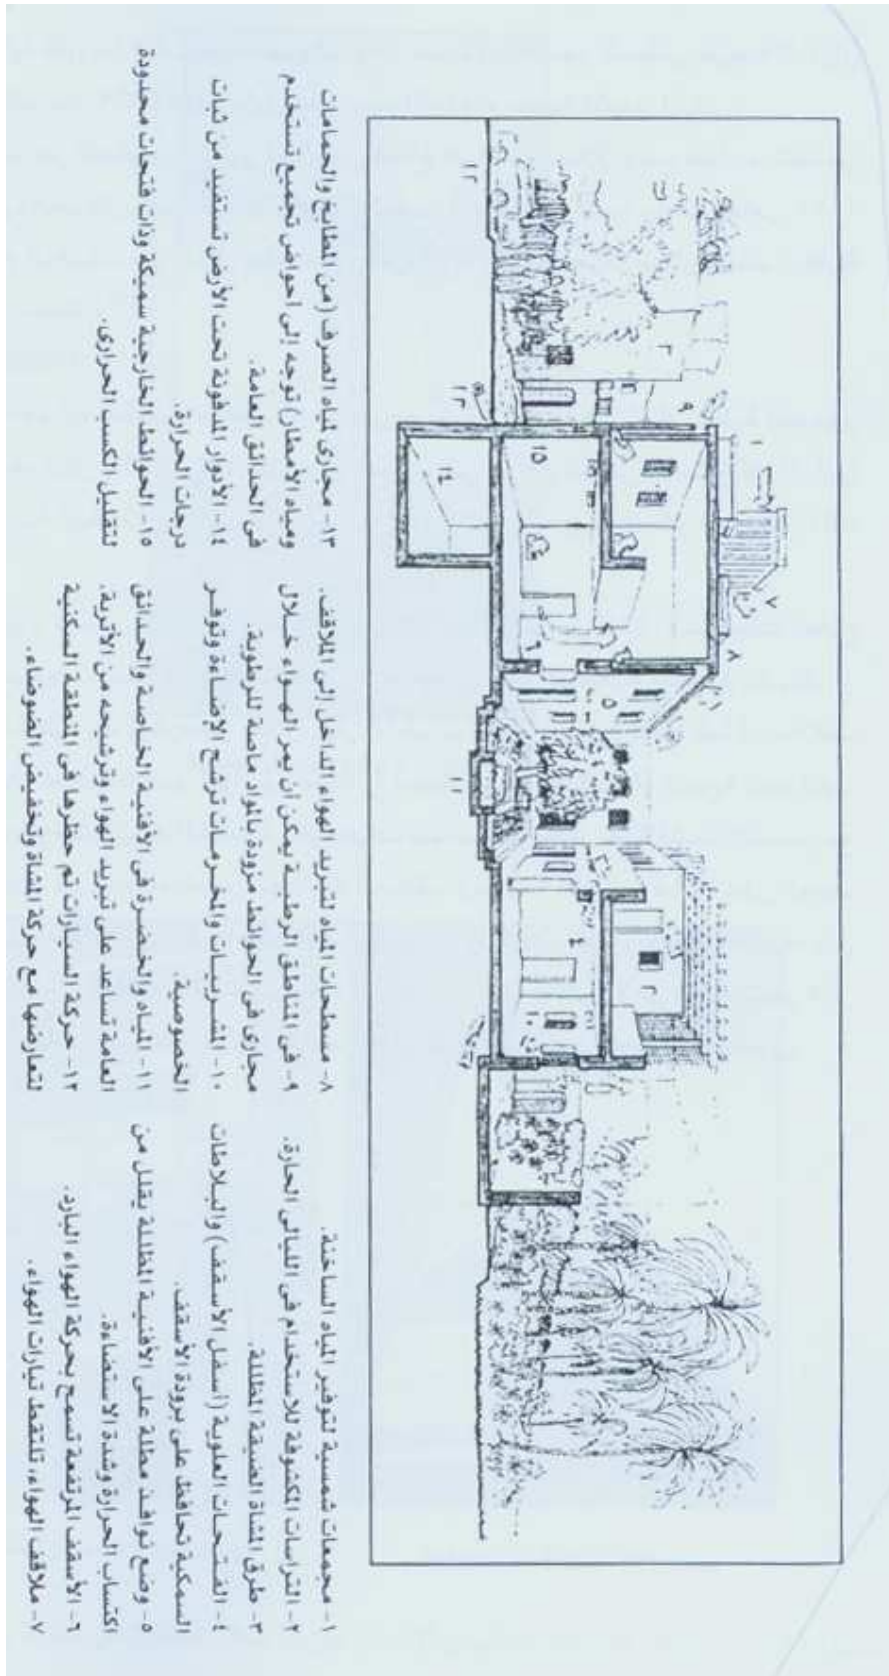 ١- مجمعات شمسية لتوفير المياه الساخنة.
٢- التراسات المكشوفة للاستخدام فى الليالى الحارة.
٣- طرق المشاة الضيقة المظللة.
٤- الفتحات العلوية (أسفل الأسقف) والبلاطات
السمكية تحافظ على برودة الأسقف.
٥- وضع نوافذ مطلة على الأفنية المظللة يقلل من
اكتساب الحرارة وشدة الاستضاءة.
٦- الأسقف المرتفعة تسمح بحركة الهواء البارد.
٧- ملاقف الهواء، تلتقط تيارات الهواء.
٨- مسطحات المياه لتبريد الهواء الداخل إلى الملاقف.
٩- فى المناطق الرطبة يمكن أن يمر الهواء خلال
مجارى فى الحوائط مزودة بالمواد ماصة للرطوبة.
١٠- المشربيات والمخرمات ترشح الإضاءة وتوفر
الخصوصية.
١١- المياه والخضرة فى الأفنية الخاصة والحدائق
العامة تساعد على تبريد الهواء وترشيحه من الأتربة.
١٢- حركة السيارات تم حظرها فى المنطقة السكنية
لتعارضها مع حركة المشاة وتخفيض الضوضاء.
١٣- مجارى لمياه الصرف (من المطابخ والحمامات
ومياه الأمطار) توجه إلى أحواض تجميع تستخدم
فى الحدائق العامة.
١٤- الأدوار المدفونة تحت الأرض تستفيد من ثبات
درجات الحرارة.
١٥- الحوائط الخارجية سميكة وذات فتحات محدودة
لتقليل الكسب الحرارى.
١
٧
٨
٩
٢
٥
١٥
٦
١٣
١٤
١٢
١١
٤
٢
١٠